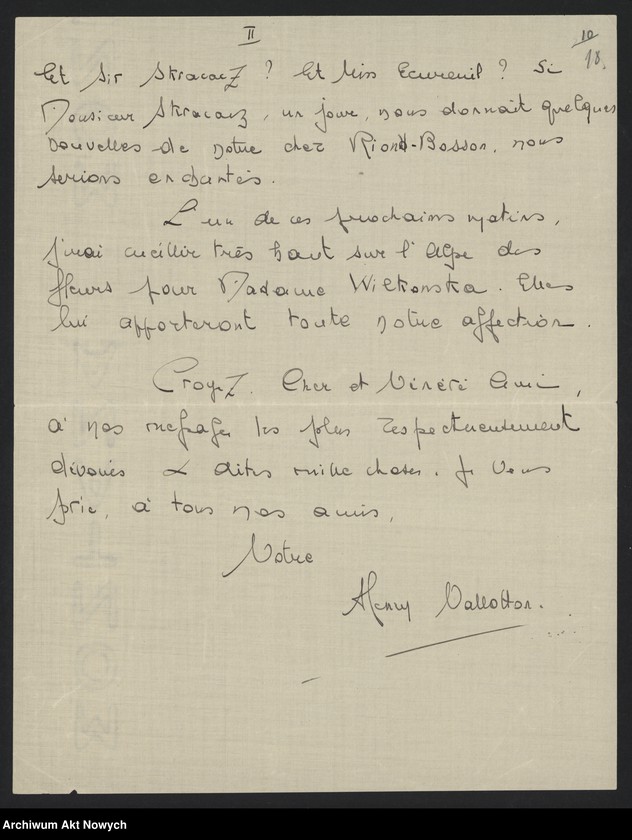 II
10
18.
Et Sir Stracacz ? Et Miss Ecureuil ? Si
Monsieur Stracacz, un jour, nous donnait quelques
nouvelles de notre cher Riond-Bosson, nous
serions enchantés.
L'un de ces prochains matins,
j'irai cueillir très haut sur l'Alpe des
fleurs pour Madame Wilkonska. Elles
lui apporteront toute notre affection.
Croyez, Cher et Vénéré Ami,
à nos messages les plus respectueusement
dévoués & dites mille choses, je vous
prie, à tous nos amis,
Votre
Henry Vallotton.
Archiwum Akt Nowych